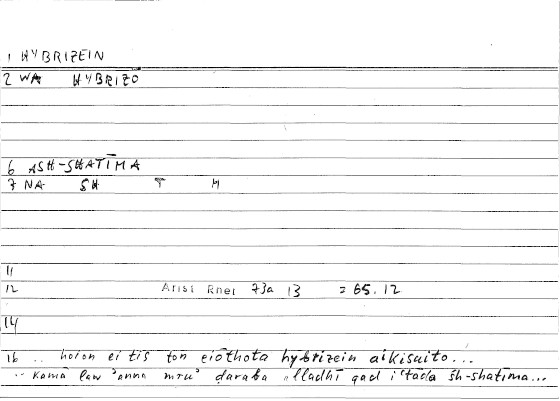 1 HYBRIZEIN
2 WA HYBRIZO
6 ASH-SHATĪMA
7 NA SH T M
11
12 Arist Rhet 73a 13 = 65.12
14
16 .. hoion ei tis ton eiōthota hybrizein aikisaito...
.. kamā law 'anna mru' ḍaraba lladhī qad i'tāda sh-shatīma...